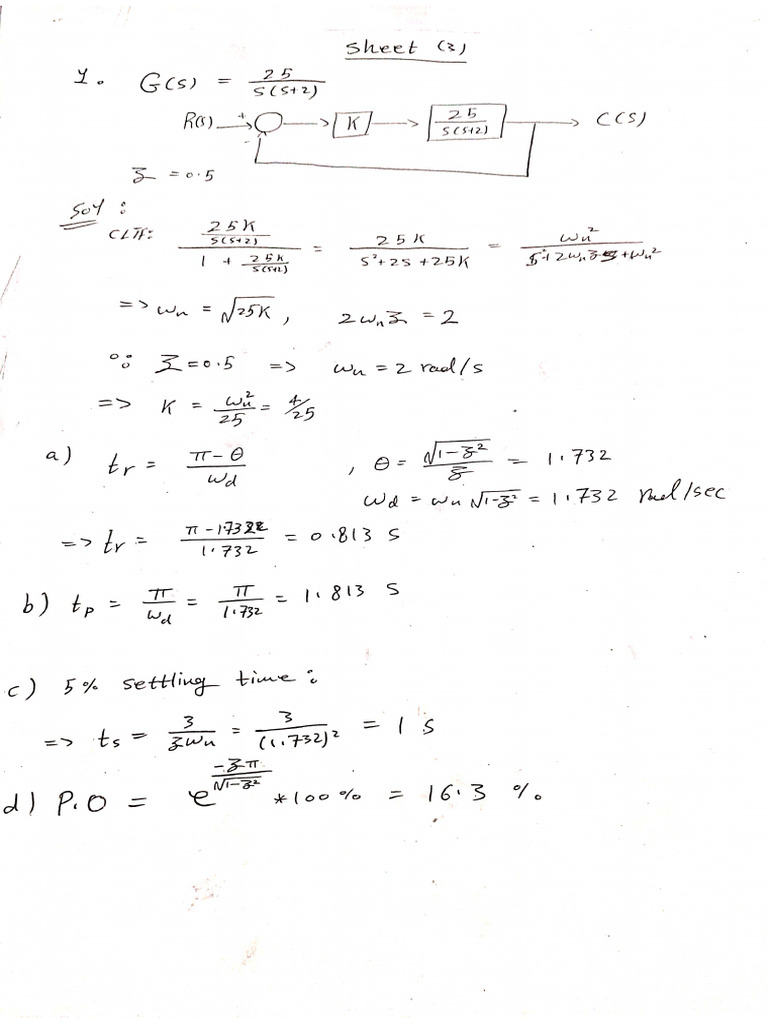 Sheet (3)
1. G(s) = 25 / s(s+2)
R(s) + - K 25 / s(s+2) C(s)
ξ = 0.5
Sol :
CLTF: (25K / s(s+2)) / (1 + 25K / s(s+2)) = 25K / (s²+2s+25K) = ωn² / (s²+2ωnξs+ωn²)
=> ωn = √25K , 2ωnξ = 2
∵ ξ = 0.5 => ωn = 2 rad/s
=> K = ωn² / 25 = 4/25
a) tr = (π - θ) / ωd , θ = √1-ξ² / ξ = 1.732
ωd = ωn √1-ξ² = 1.732 rad/sec
=> tr = (π - 1732) / 1.732 = 0.813 s
b) tp = π / ωd = π / 1.732 = 1.813 s
c) 5% settling time :
=> ts = 3 / ξωn = 3 / (1.732)² = 1 s
d) P.O = e^(-ξπ / √1-ξ²) *100% = 16.3 %